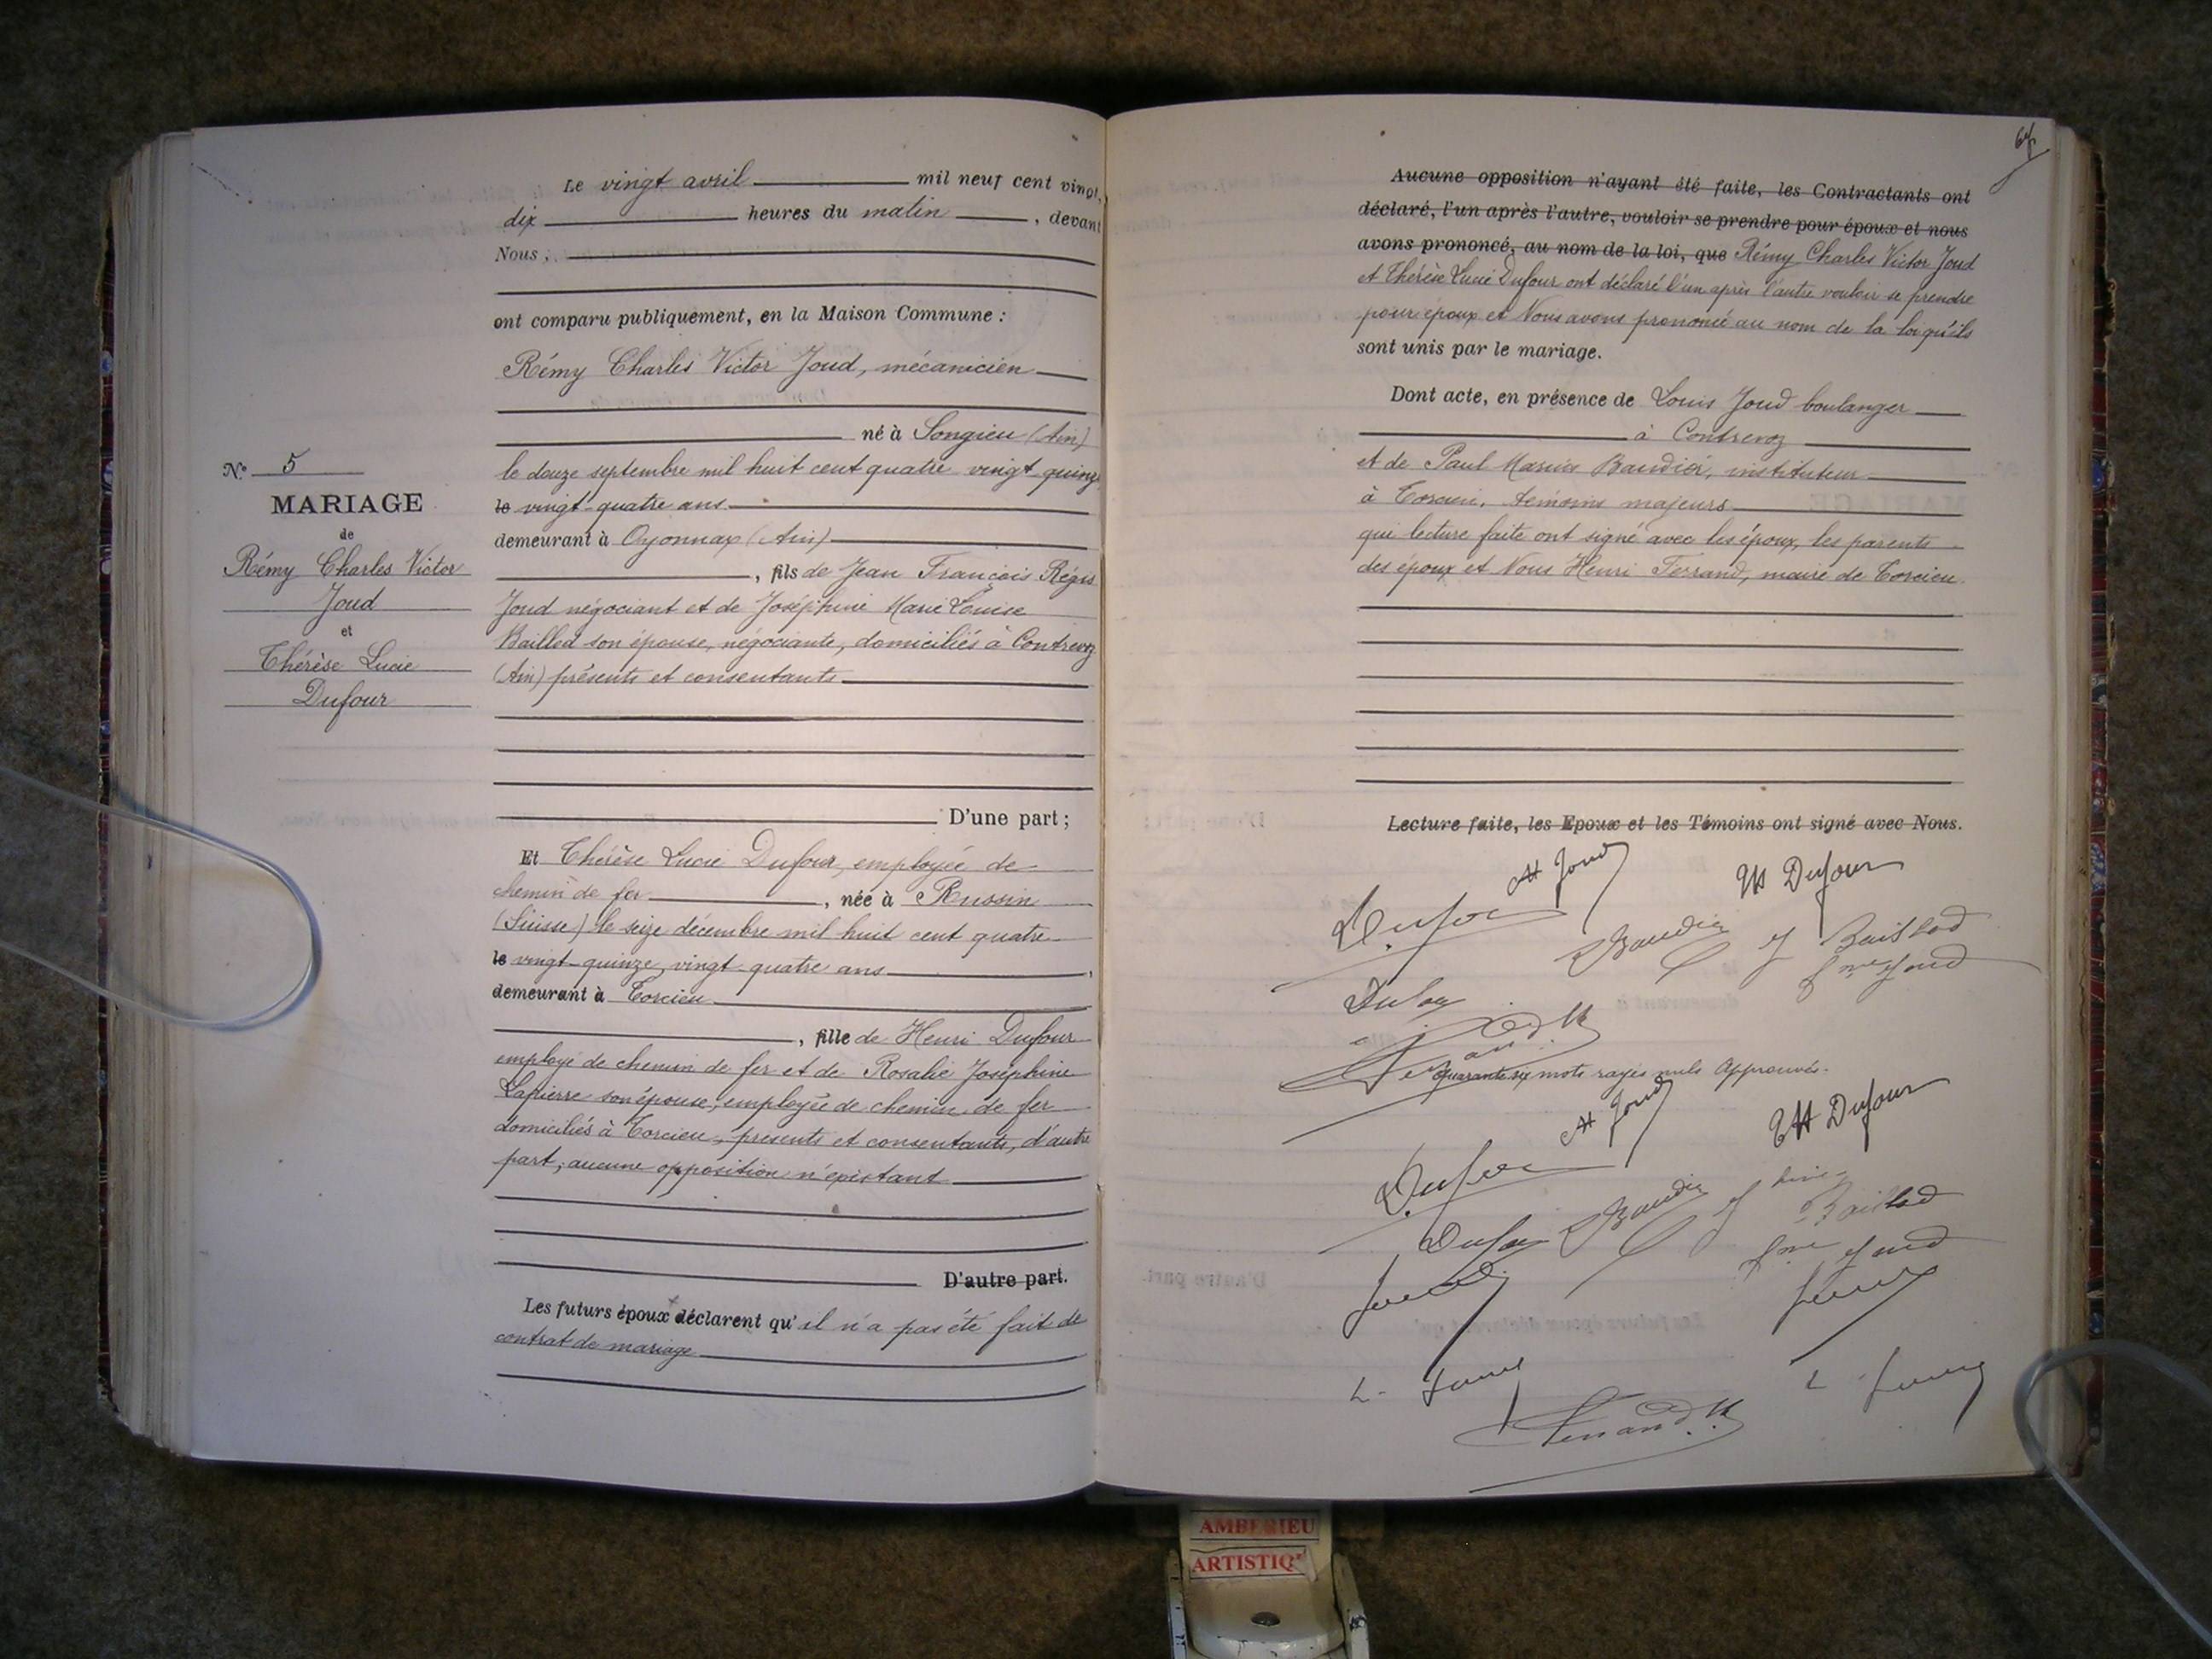 N° 5
MARIAGE
de
Rémy Charles Victor
Joud
et
Thérèse Lucie
Dufour
Le vingt avril mil neuf cent vingt,
dix heures du matin , devant
Nous,
ont comparu publiquement, en la Maison Commune :
Rémy Charles Victor Joud, mécanicien
né à Songieu (Ain)
le douze septembre mil huit cent quatre vingt quinze
le vingt-quatre ans
demeurant à Oyonnax (Ain)
, fils de Jean François Régis
Joud négociant et de Joséphine Marie Louise
Baillod son épouse, négociante, domiciliés à Contrevoz
(Ain) présents et consentants
D'une part ;
Et Thérèse Lucie Dufour, employée de
chemin de fer , née à Russin
(Suisse) le seize décembre mil huit cent quatre
le vingt-quinze, vingt-quatre ans ,
demeurant à Torcieu
, fille de Henri Dufour
employé de chemin de fer et de Rosalie Joséphine
Lapierre son épouse, employée de chemin de fer
domiciliés à Torcieu, présents et consentants, d'autre
part, aucune opposition n'existant
D'autre part.
Les futurs époux déclarent qu'il n'a pas été fait de
contrat de mariage
Aucune opposition n'ayant été faite, les Contractants ont
déclaré, l'un après l'autre, vouloir se prendre pour époux et nous
avons prononcé, au nom de la loi, que Rémy Charles Victor Joud
et Thérèse Lucie Dufour ont déclaré l'un après l'autre vouloir se prendre
pour époux et Nous avons prononcé au nom de la loi qu'ils
sont unis par le mariage.
Dont acte, en présence de Louis Joud boulanger
à Contrevoz
et de Paul Marius Baudier, instituteur
à Torcieu, témoins majeurs
qui lecture faite ont signé avec les époux, les parents
des époux et Nous Henri Ferrand, maire de Torcieu.
Lecture faite, les Epoux et les Témoins ont signé avec Nous.
Joud
Dufour
Dufour
Baudier
J Baillod
fme Joud
Dufour
Quarante six mots rayés nuls Approuvés.
Joud
Dufour
Dufour
Baudier
Baillod
Dufour
fme Joud
L. Joud
L. Joud
Ferrand H.
AMBERIEU
ARTISTIQ